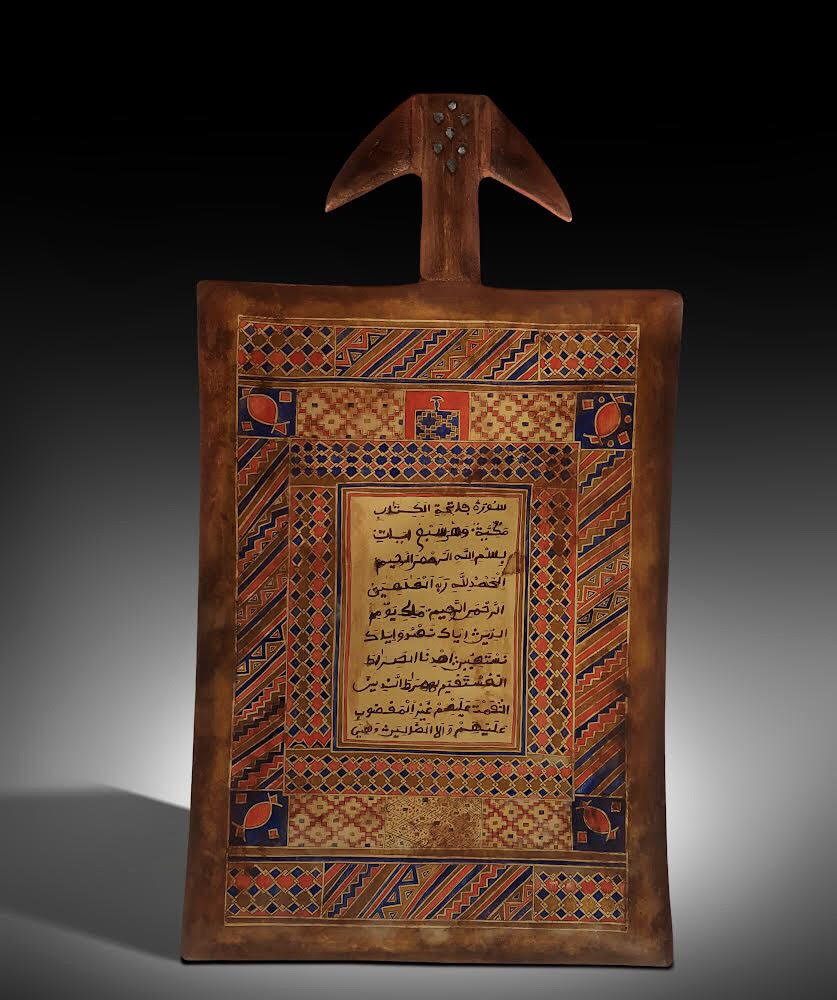 سورة فاتحة الكتاب
مكية وهي سبع ايات
بسم الله الرحمن الرحيم
الحمد لله رب العلمين
الرحمن الرحيم ملك يوم
الدين اياك نعبد واياك
نستعين اهدنا الصراط
المستقيم صراط الذين
انعمت عليهم غير المغضوب
عليهم ولا الضالين